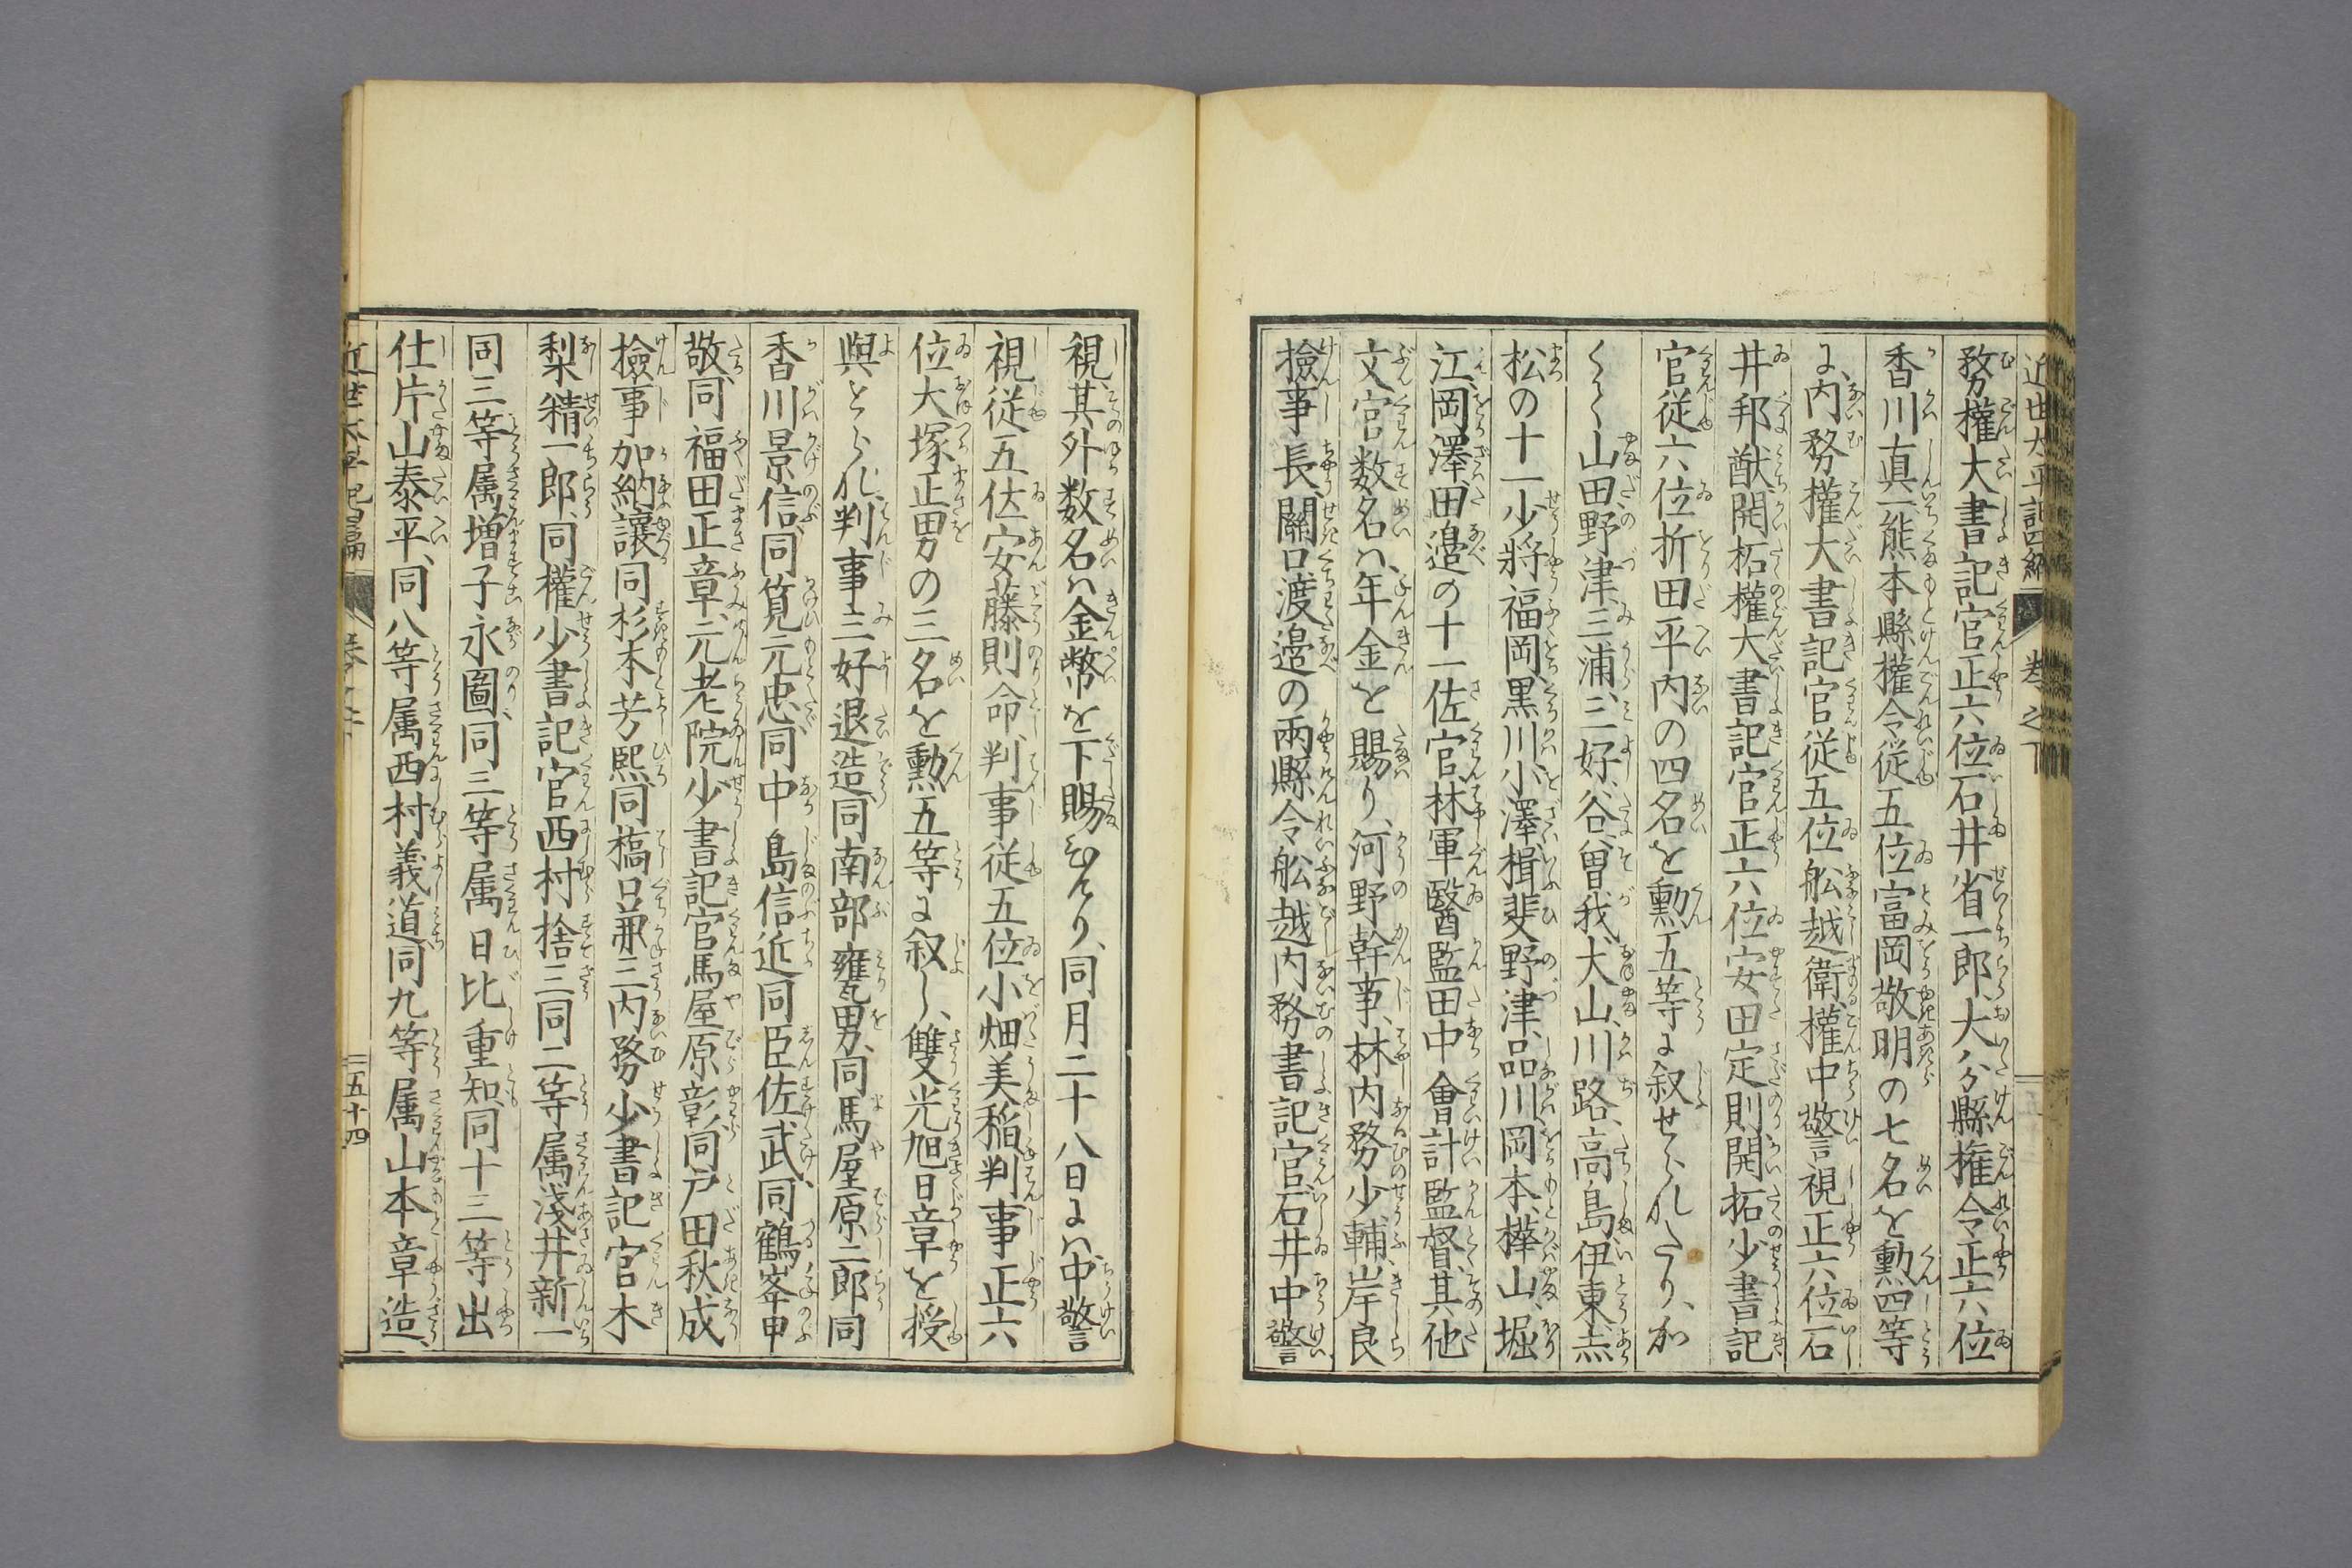 近世太平記四編 巻之下
務權大書記官正六位石井省一郎、大分縣権令正六位
香川真一熊本縣權令従五位富岡敬明の七名を勲四等
に、内務權大書記官従五位舩越衛權中警視正六位石
井邦猷開拓權大書記官正六位安田定則開拓少書記
官従六位折田平内の四名を勲五等に叙せられたり、加
山田、野津、三浦、三好、谷、曽我、大山、川路、高島、伊東、赤
松の十一少将福岡、黒川、小澤、揖斐、野津、品川、岡本、樺山、堀
江、岡澤、田邉の十一佐官林軍醫監田中會計監督、其他
文官数名ハ年金を賜り、河野幹事、林内務少輔、岸良
撿事長、關口渡邉の兩縣令舩越内務書記官石井中警
視、其外数名ハ金幣を下賜せり、同月二十八日にハ中警
視従五位安藤則命判事従五位小畑美稲判事正六
位大塚正男の三名を勲五等に叙し、雙光旭日章を授
與せられ、判事三好退造同南部甕男、同馬屋原二郎同
香川景信同筧元忠同中島信近同臣佐武、同鶴峯申
敬同福田正章、元老院少書記官馬屋原彰同戸田秋成
撿事加納讓同杉本芳熙同槁口兼三内務少書記官木
梨精一郎、同權少書記官西村捨三同二等属淺井新一
同三等属増子永圖同三等属日比重知同十三等出
仕片山泰平、同八等属西村義道同九等属山本章造、
近世太平記 五十四